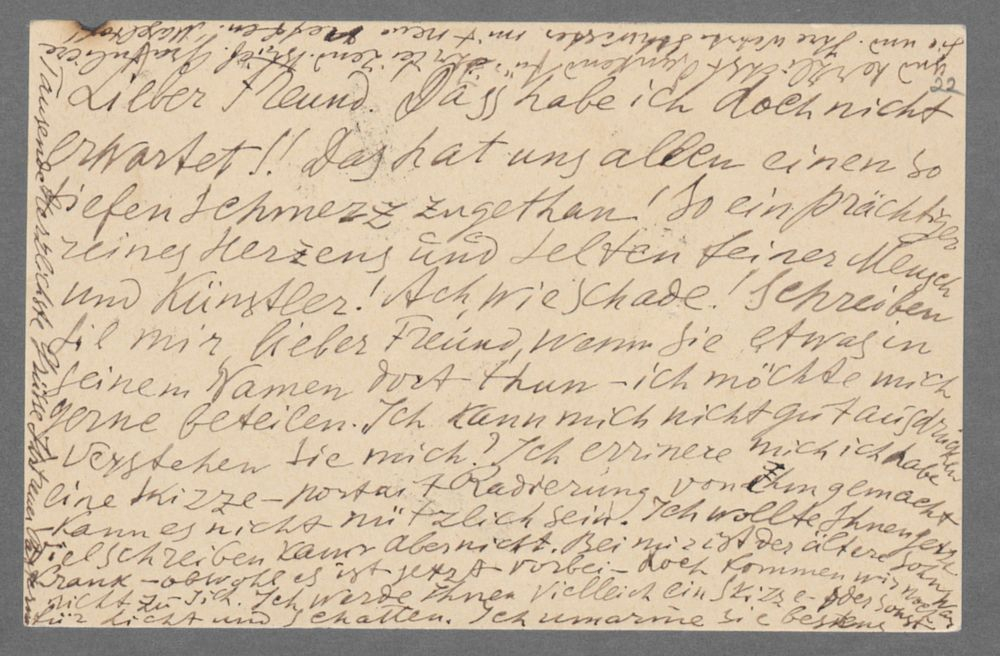 Lieber Freund. Dass habe ich doch nicht
erwartet!! Das hat uns allen einen so
tiefen Schmerz zugethan! So ein prächtiger
reines Herzens und selten feiner Mensch
und Künstler! Ach, wie schade! Schreiben
Sie mir, lieber Freund, wenn Sie etwas in
seinem Namen dort thun – ich möchte mich
gerne beteilen. Ich kann mich nicht gut ausdrücken
Verstehen Sie mich? Ich errinere mich ich habe
eine Skizze – portait Radierung von Ihm gemacht
– Kann es nicht nützlich sein. Ich wollte Ihnen gern
viel schreiben kann aber nicht. Bei mir ist der ältere Sohn
krank – obwohl es ist jetzt vorbei – doch kommen wir noch
nicht zu sich. Ich werde Ihnen vielleich ein Skizze oder sonst
für Licht und Schatten. Ich umarme Sie bestens
Tausend herzlichste Grüße
und herzlichst
Sie und Ihre werte mit neue